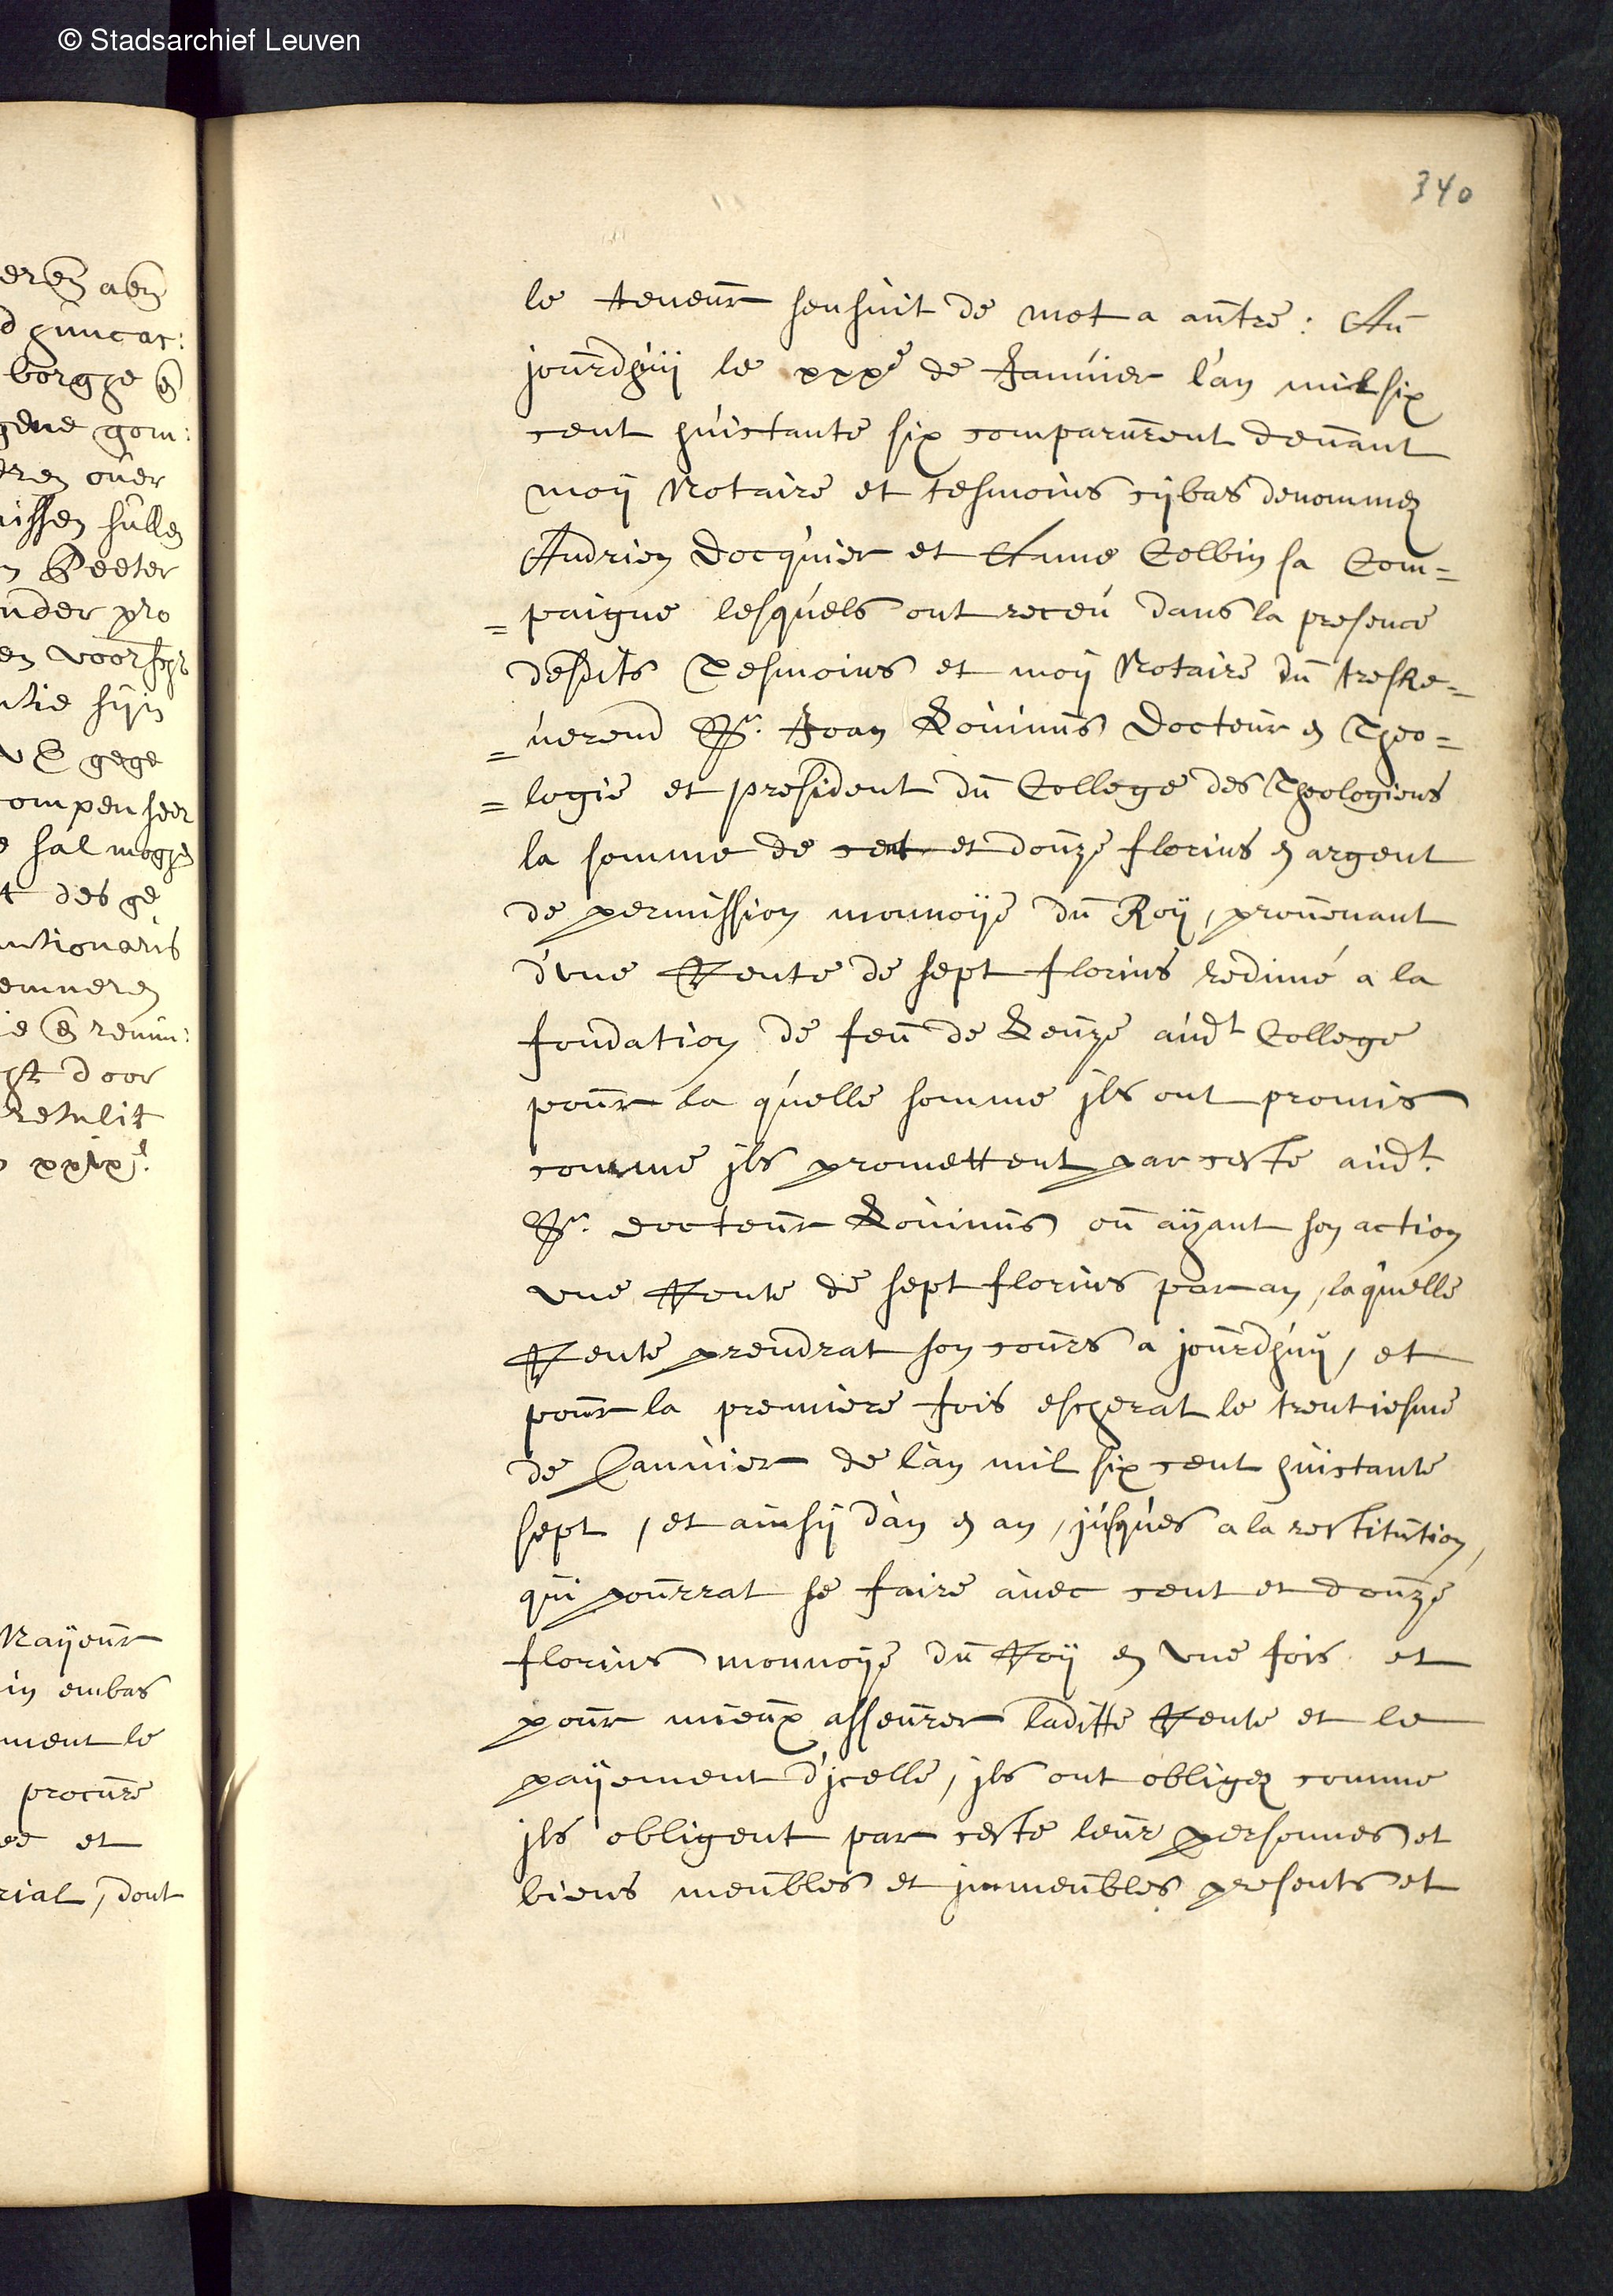 © Stadsarchief Leuven
340
le teneur sensuit de mot a autre : Au
jourdhuij le xxxe de Januier l'an mil six
cent huictante six comparurent deuant
moij Notaire et tesmoins cijbas denommez
Andrien Docquier et Anne Colbin sa Com=
=paigne lesquels ont receu dans la presence
desdits Tesmoins et moij Notaire du tresRe=
=uerend Sr. Joan Rouinus Docteur en Theo=
=logie et president du College des Theologiens
la somme de cent et douze florins en argent
de permission monnoije du Roij, prouenant
d'vne Rente de sept florins redimé a la
fondation de feu de Reuze audt College
pour la quelle somme jls ont promis
comme jls promettent par ceste audt.
Sr. docteur Rouinus ou aijant son action
vne Rente de sept florins par an, laquelle
Rente prendrat son cours a jourdhuij, et
pour la premiere fois escherat le trentiesme
de Januier de l'an mil six cent huictante
sept, et ainsij d'an en an, jusques a la restitution,
qui pourrat se faire auec cent et douze
florins monnoije du Roij en vne fois et
pour mieux asseurer laditte Rente et le
paijement d'jcelle, jls ont obligez comme
jls obligent par ceste leur personnes et
biens meubles et jmmeubles presents et
borghe
gene gom:
ouer
sullen
Peeter
pro
voorschr
sijn
gege
sal moghen
des ge
door
retulit
Maijeur
embas
le
procure
et
dont